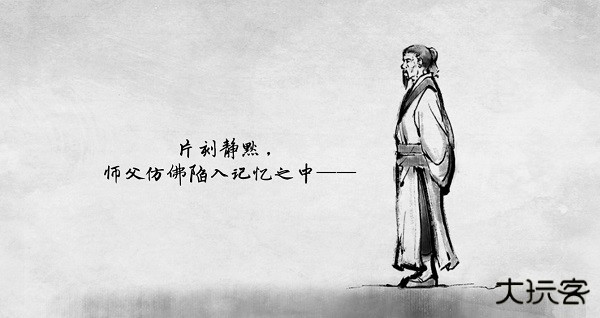 片刻静默，
师父仿佛陷入记忆之中——
大玩客